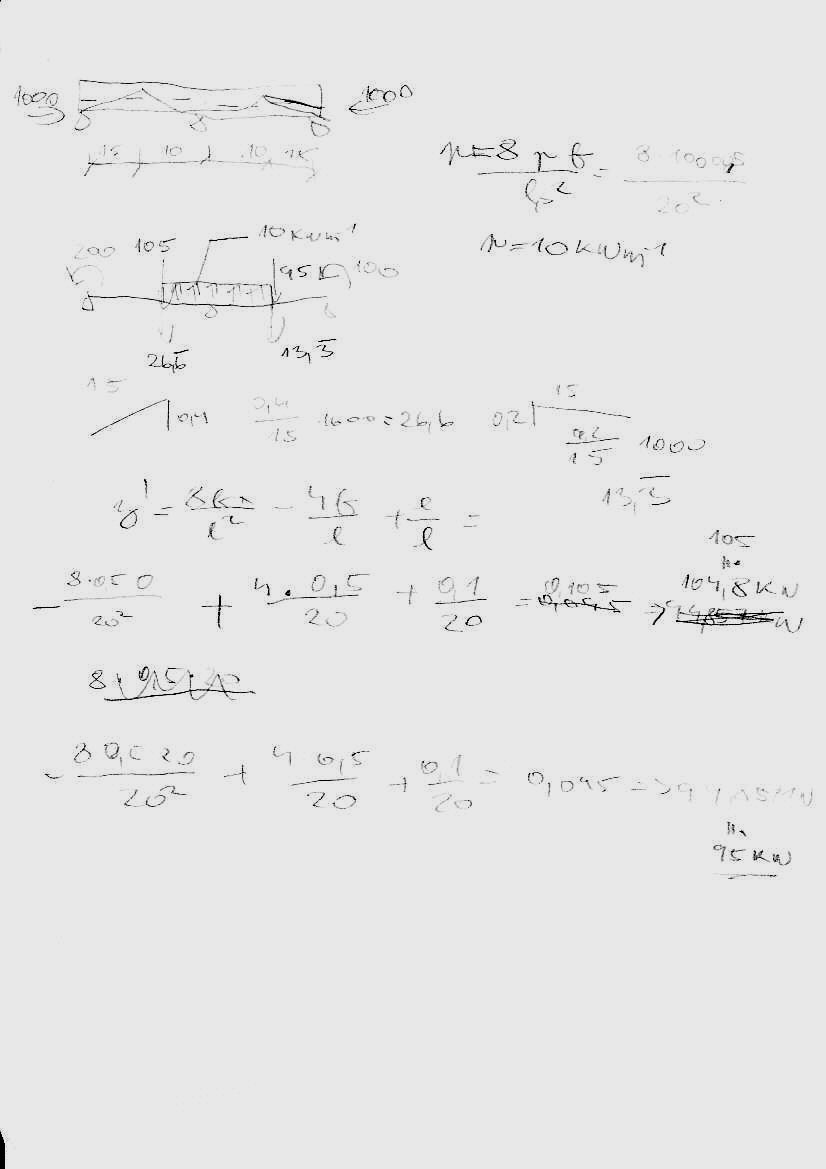 1000 1000
15 10 10 15
n=8 p f / lp² = 8·1000·0,5 / 20²
n=10 kNm⁻¹
200 105 10 kNm⁻¹
95 100
26,6 13,3
15 15
0,4 0,4/15 1000=26,6 0,2 0,2/15 1000
13,3
y' = 8fx/l² - 4f/l + e/l =
105
104,8 kN
- 8·0,5·0/20² + 4·0,5/20 + 0,1/20 = 0,105 =>
- 8 0,5 20/20² + 4 0,5/20 + 0,1/20 = 0,095 =>
95 kN